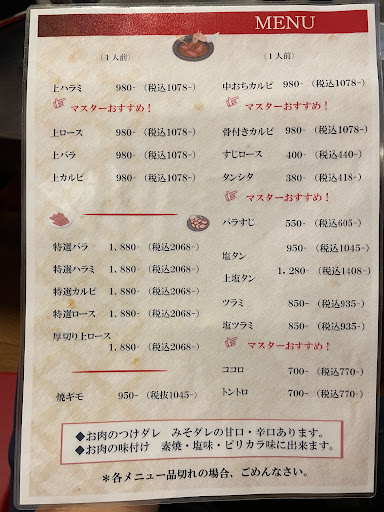 MENU
(1人前)
上ハラミ 980- (税込1078-)
☞ マスターおすすめ!
上ロース 980- (税込1078-)
上バラ 980- (税込1078-)
上カルビ 980- (税込1078-)
特選バラ 1,880- (税込2068-)
特選ハラミ 1,880- (税込2068-)
特選カルビ 1,880- (税込2068-)
特選ロース 1,880- (税込2068-)
厚切り上ロース 1,880- (税込2068-)
焼ギモ 950- (税抜1045-)
(1人前)
中おちカルビ 980- (税込1078-)
☞ マスターおすすめ!
骨付きカルビ 980- (税込1078-)
すじロース 400- (税込440-)
タンシタ 380- (税込418-)
☞ マスターおすすめ!
バラすじ 550- (税込605-)
塩タン 950- (税込1045-)
上塩タン 1,280- (税込1408-)
ツラミ 850- (税込935-)
塩ツラミ 850- (税込935-)
☞ マスターおすすめ!
ココロ 700- (税込770-)
トントロ 700- (税込770-)
◆お肉のつけダレ みそダレの甘口・辛口あります。
◆お肉の味付け 素焼・塩味・ピリカラ味に出来ます。
*各メニュー品切れの場合、ごめんなさい。